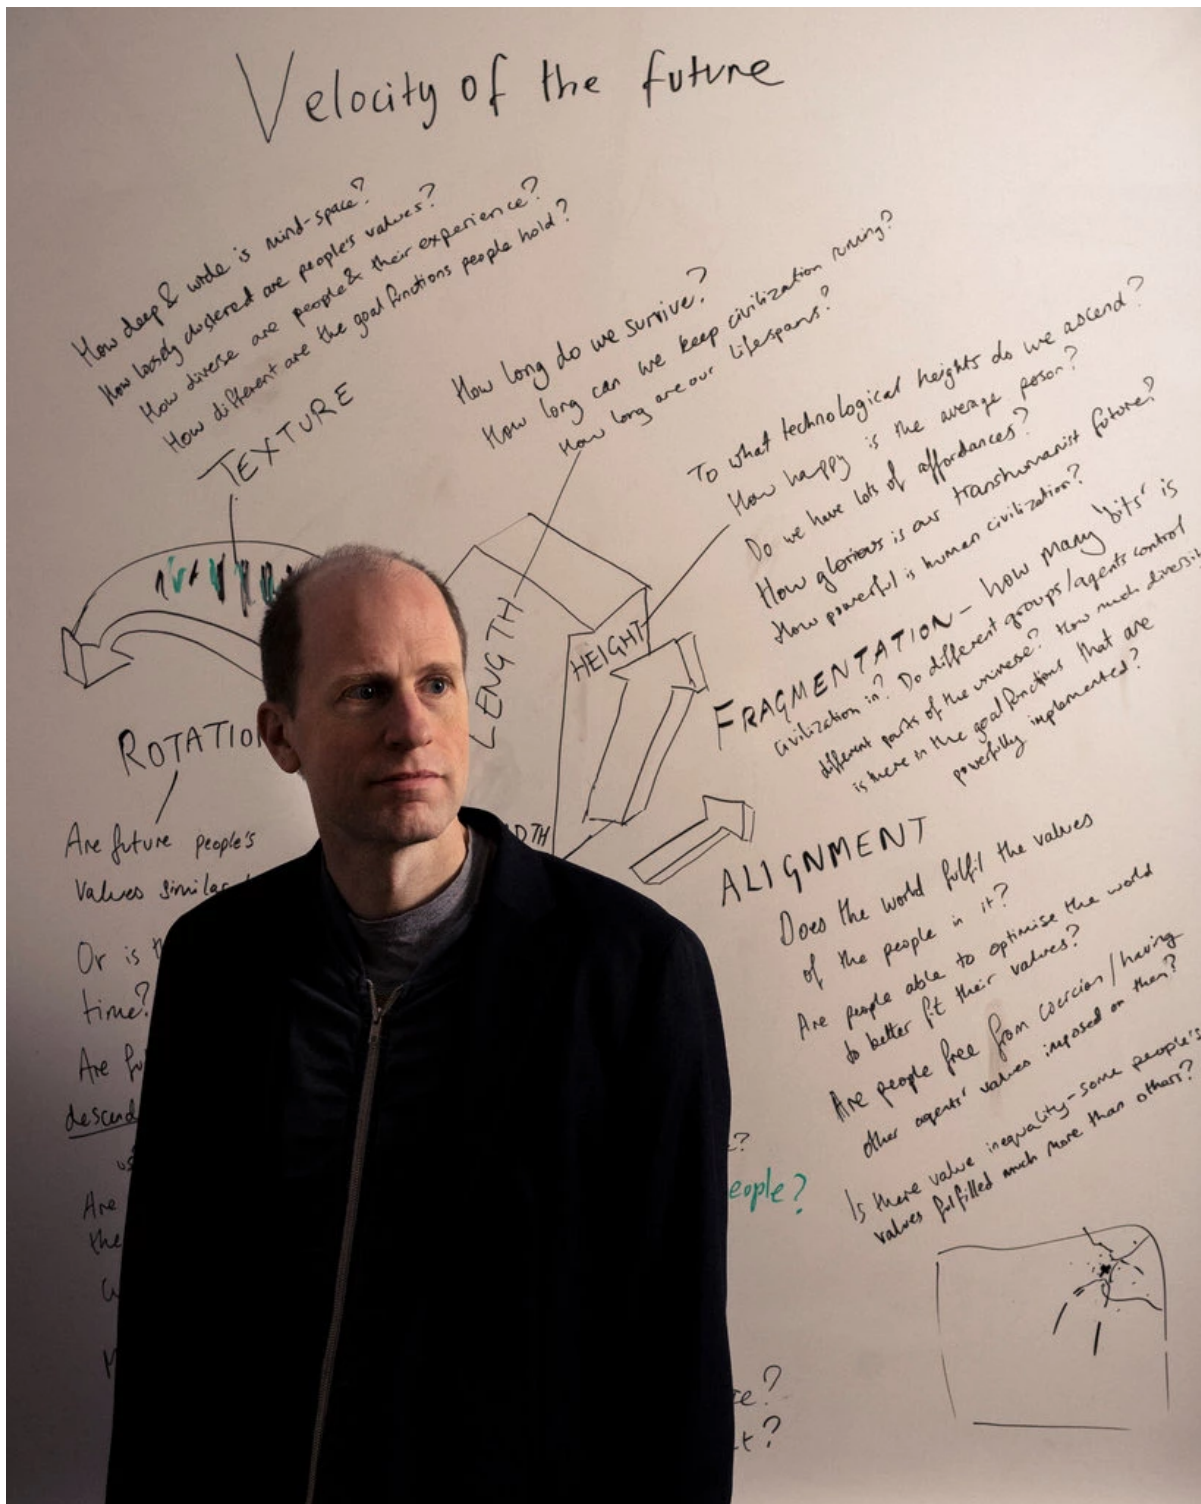 Velocity of the future
How deep & wide is mind-space?
How loosely clustered are people's values?
How diverse are people & their experience?
How different are the goal functions people hold?
TEXTURE
How long do we survive?
How long can we keep civilization running?
How long are our lifespans?
To what technological heights do we ascend?
How happy is the average person?
Do we have lots of affordances?
How glorious is our transhumanist future?
How powerful is human civilization?
LENGTH
HEIGHT
FRAGMENTATION - how many 'bits' is
civilization in? Do different groups/agents control
different parts of the universe? How much diversity
is there in the goal functions that are
powerfully implemented?
ROTATIO
DTH
Are future people's
values similar
Or is th
time?
Are fu
descend
us
Are
the
ALIGNMENT
Does the world fulfil the values
of the people in it?
Are people able to optimise the world
to better fit their values?
Are people free from coercion/having
other agents' values imposed on them?
Is there value inequality - some people's
values fulfilled much more than others?
?
eople?
ce?
t?